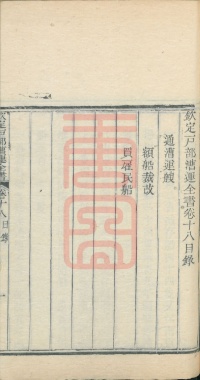 欽定戶部漕運全書卷十八目錄
通漕運艘
額船裁改
買雇民船
欽定戶部漕運全書
卷十八目錄
一